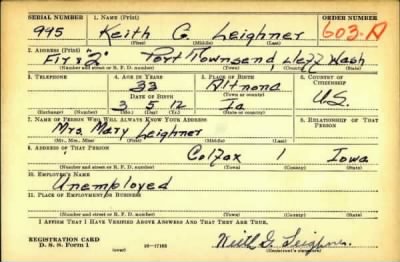 SERIAL NUMBER 1. NAME (Print) ORDER NUMBER
995 Keith G. Leighner 603-A
(First) (Middle) (Last)
2. ADDRESS (Print)
Fir & "2" Port Townsend, Jeff Wash
(Number and street or R. F. D. number) (Town) (County) (State)
3. TELEPHONE 4. AGE IN YEARS 5. PLACE OF BIRTH 6. COUNTRY OF CITIZENSHIP
33 Altoona
DATE OF BIRTH (Town or county)
3 5 12 Ia U.S.
(Exchange) (Number) (Mo.) (Day) (Yr.) (State or country)
7. NAME OF PERSON WHO WILL ALWAYS KNOW YOUR ADDRESS 8. RELATIONSHIP OF THAT PERSON
Mrs. Mary Leighner
(Mr., Mrs., Miss) (First) (Middle) (Last)
9. ADDRESS OF THAT PERSON
Colfax Iowa
(Number and street or R. F. D. number) (Town) (County) (State)
10. EMPLOYER'S NAME
Unemployed
11. PLACE OF EMPLOYMENT OR BUSINESS
(Number and street or R. F. D. number) (Town) (County) (State)
I AFFIRM THAT I HAVE VERIFIED ABOVE ANSWERS AND THAT THEY ARE TRUE.
REGISTRATION CARD
D. S. S. Form 1 (over) 16-17105 Keith G. Leighner
(Registrant's signature)